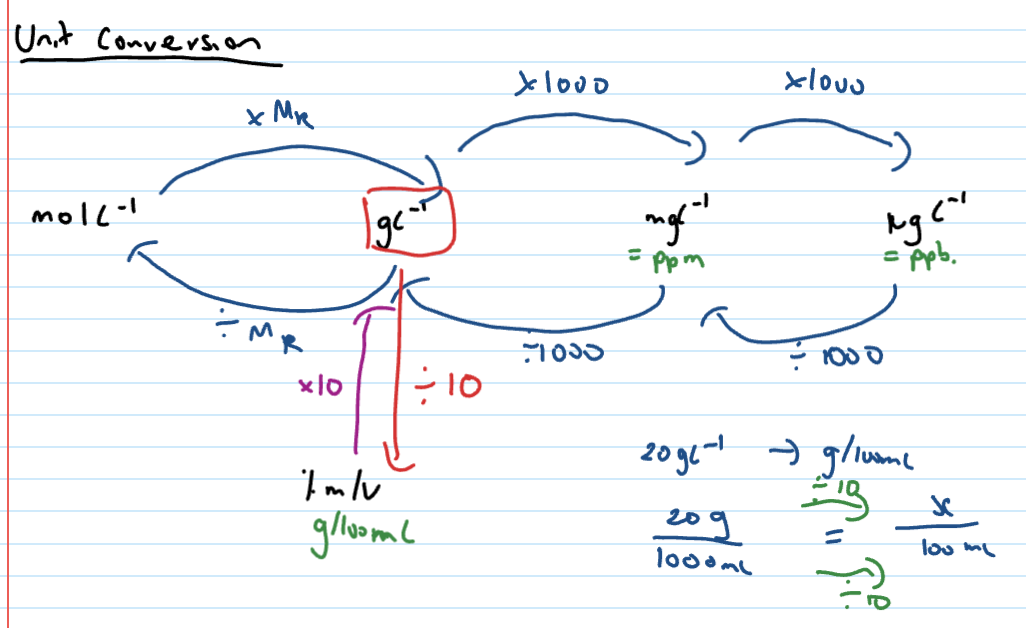 Unit Conversion
x1000 x1000
x MR
molL⁻¹ gL⁻¹ mgL⁻¹ μgL⁻¹
= ppm = ppb.
÷ MR ÷1000 ÷ 1000
x10 ÷ 10
% m/v
g/100mL
20gL⁻¹ → g/100mL
÷10
20g = x
1000mL 100 mL
÷10